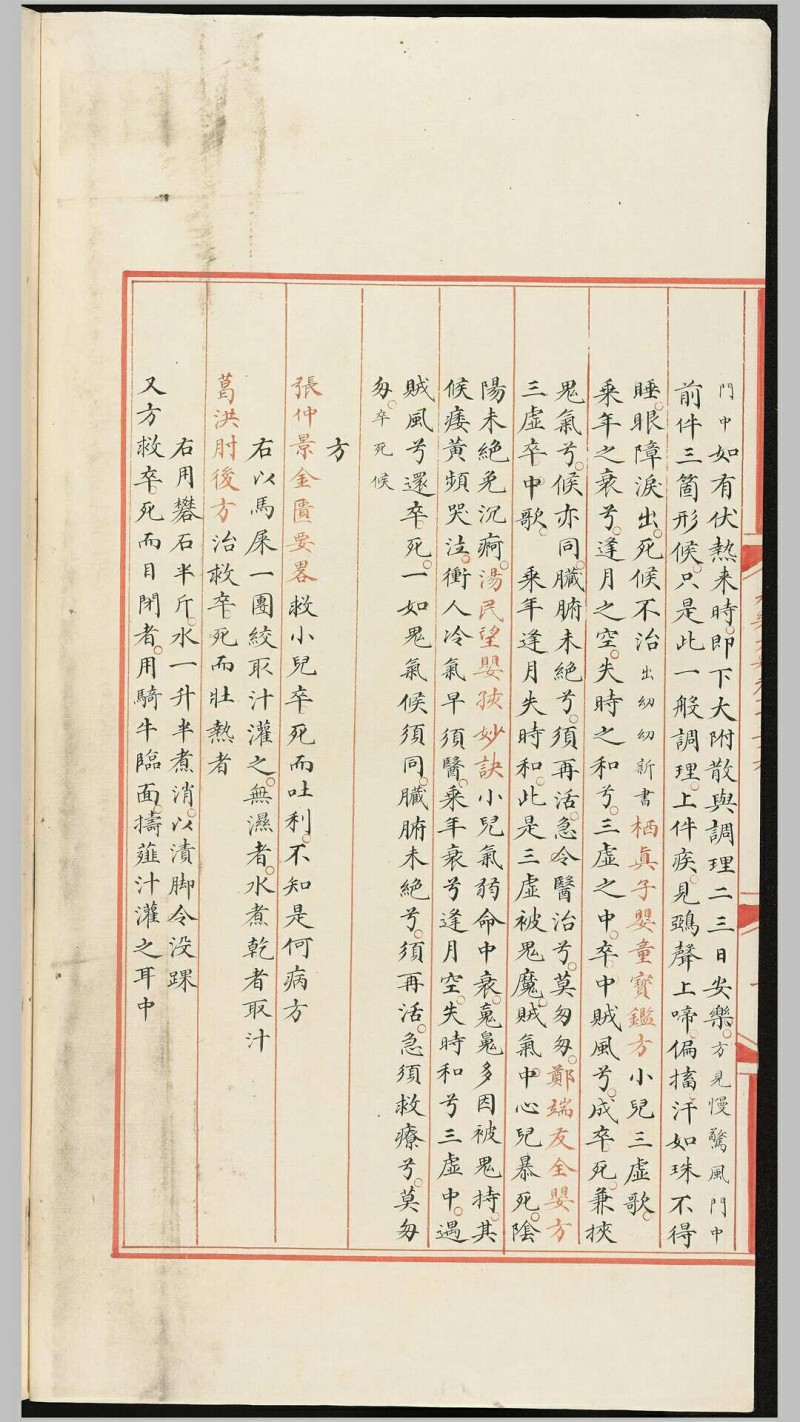 門中如有伏熱来時。即下大附散與調理二三日安樂。方見慢驚風門中
前件三箇形候。只是此一般調理。上件疾。見鵶聲上啼。偏搐。汗如珠不得
睡。眼障淚出。死候不治出幼幼新書栖真子嬰童寳鑑方小兒三虛歌。
乗年之衰兮。逢月之空。失時之和兮。三虛之中。卒中賊風兮。成卒死。兼挾
鬼氣兮。候亦同。臓腑未絶兮。須再活。急令醫治兮。莫匆匆。鄭端友全嬰方
三虛卒中歌。 乗年逢月失時和。此是三虛被鬼魔。賊氣中心兒暴死。隂
陽未絶免沉痾。湯民望嬰孩妙訣小兒氣弱命中衰。䰟鬼多因被鬼持。其
候痿黄頻哭泣。衝人冷氣早須醫。乗年衰兮逢月空。失時和兮三虛中。遇
賊風兮還卒死。一如鬼氣候須同。臓腑未絶兮。須再活。急須救療兮。莫匆
匆。卒死候
方
張仲景金匱要畧救小兒卒死而吐利。不知是何病方
右以馬屎一團絞取汁灌之。無濕者。水煮乾者取汁
葛洪肘後方治救卒死而壯熱者
右用礬石半斤。水一升半煮消。以漬脚令没踝
又方救卒死而目閉者。用騎牛臨面。擣薤汁灌之耳中